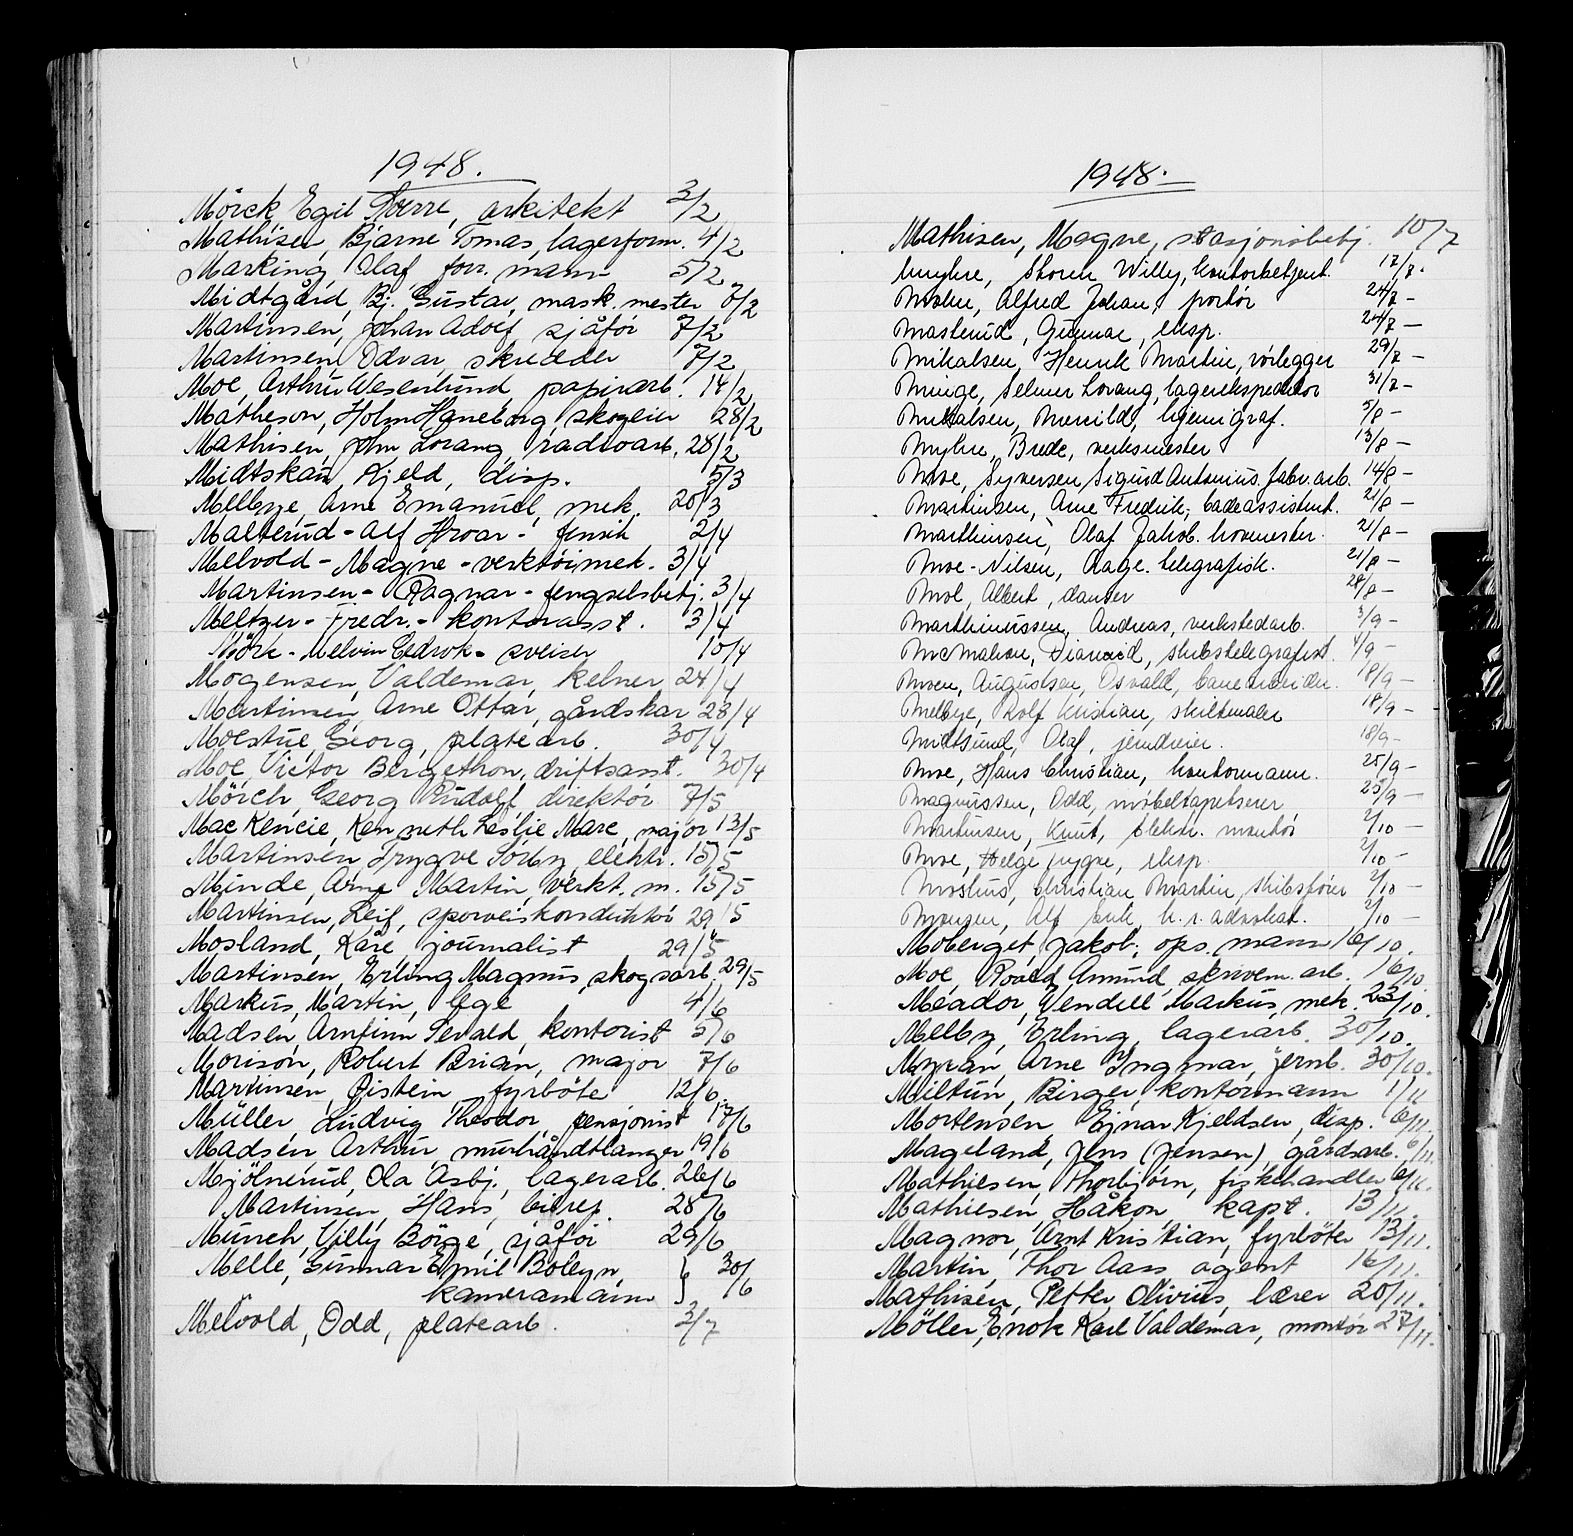 1948.
Mörck Egil Sverre, arkitekt 3/2
Mathisen, Bjarne Tomas, lagerform. 4/2
Marking Olaf forr. mann 5/2
Midtgård, Bj. Gustav, mask. mester 7/2
Martinsen, Johan Adolf sjåför 7/2
Martinsen, Odvar, skredder 7/2
Moe, Arthur Wesenlund, papirarb. 14/2
Matheson, Holm Haneborg, skogeier 28/2
Mathisen, John Lorang, radioarb. 28/2
Midtskau, Kjeld, disp. 5/3
Melbye, Arne Emanuel, mek. 20/3
Malterud - Alf Hroar - 2/4
Melvold - Magne - verktöimek. 3/4
Martinsen - Ragnar - fengselsbetj. 3/4
Meltzer - Fredr. - kontorasst. 3/4
Mörk - Melvin Cedrok - sveiser 10/4
Mogensen, Valdemar, kelner 24/4
Martinsen, Arne Ottar, gårdskar 28/4
Molstue, Georg, platearb. 30/4
Moe, Victor Bergethon, driftsasst. 30/4
Mörch, Georg Rudolf, direktör 7/5
Mac Kencie, Kenneth Leslie Marc, major 13/5
Martinsen, Trygve Sörby, elektr. 15/5
Minde, Arne Martin, verkt. m. 15/5
Martinsen, Leif, sporveiskonduktör 29/5
Mosland, Kåre, journalist 29/5
Martinsen, Erling Magnus, skogsarb. 29/5
Markus, Martin, lege 4/6
Madsen, Arnfinn Sevald, kontorist 5/6
Morison, Robert Brian, major 7/6
Martinsen, Øistein, fyrböte 12/6.
Müller, Ludvig Theodor, pensjonist 17/6
Madsen, Arthur, murhåndtlanger 19/6
Mjölnerud, Ola Asbj., lagerarb. 26/6
Martinsen, Hans, bilrep. 28/6
Münch, Villy Börge, sjåför 29/6
Melle, Gunnar Emil Boleyn, } 30/6
kameramann
Melvold, Odd, platearb. 3/7
1948.
Mathisen, Magne, stasjonsbetj. 10/7
Myhre, Storm Willy, kontorbetjent. 17/7.
Moen, Alfred Johan, portör 24/7 -
Masterud, Gunnar, eksp. 24/7 -
Mikalsen, Henrik Martin, rörlegger 29/7 -
Minge, Selmer Lorang, lagerekspeditör 31/7 -
Mikalsen, kjemigraf. 5/8 -
Myhre, Brede, verksmester 13/8 -
Moe, Syversen, Sigurd Antonius, fabr.arb. 14/8 -
Martinsen, Arne Fredrik, badeassistent. 21/8 -
Marthinsen, Olaf Jakob. hovmester. 21/8 -
Moe-Nilsen, Aage. telegrafisk. 21/8 -
Mol, Albert, danser 28/8 -
Marthinussen, Andreas, verkstedarb. 3/9 -
McMahon, skibstelegrafist. 4/9 -
Moen, Augustsen, Osvald, 18/9 -
Melbye, Rolf Kristian, skiltmaler 18/9 -
Midtsund, Olaf, jerndreier. 18/9 -
Moe, Hans Christian, kontormann. 25/9 -
Magnussen, Odd, möbeltapetserer 25/9 -
Martinsen, Knut, elektr. montör 2/10 -
Moe, Helge Trygve, eksp. 2/10 -
Christian Martin, skibsförer 2/10 -
Alf Erik, h.r. advokat. 2/10 -
Moberget, Jakob, ops. mann 16/10.
Moe, Roald Amund, skrivem. arb. 16/10.
Meador, Wendell Markus, mek. 23/10.
Melby, Erling, lagerarb. 30/10.
Myran, Arne Ingmar, jernb. 30/10.
Miltun, Birger, kontormann 1/11
Mortensen, Ejnar Kjeldsen, disp. 6/11.
Mageland, Jens (Jensen) gårdsarb. 6/11.
Mathiesen, Thorbjörn, fiskehandler 6/11.
Mathiesen Håkon kapt. 13/11.
Magnor, Arnt Kristian, fyrböter 13/11.
Martin, Thor Aass agent 16/11.
Mathisen, Petter Olivius, lærer 20/11.
Möller, Enok Karl Valdemar, montör 27/11.